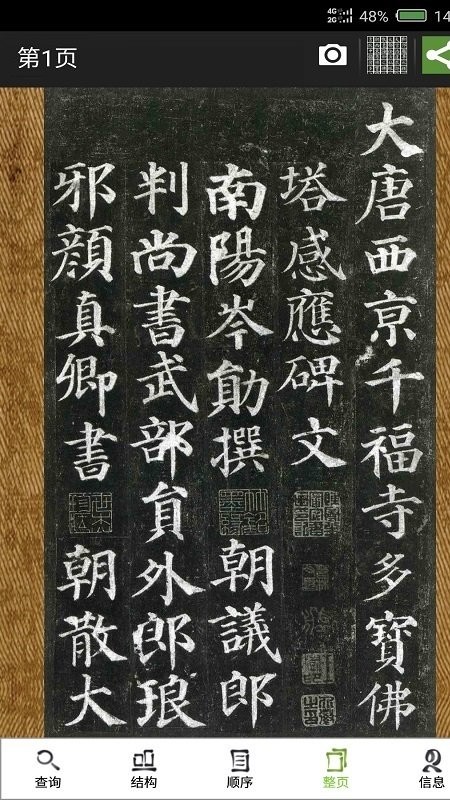 4G 2G 48% 14
第1页
大唐西亰千福寺多寶佛
塔感應碑文
南陽岑勛撰 朝議郎
判尚書武部員外郎琅
邪顏真卿書 朝散大
查询 结构 顺序 整页 信息